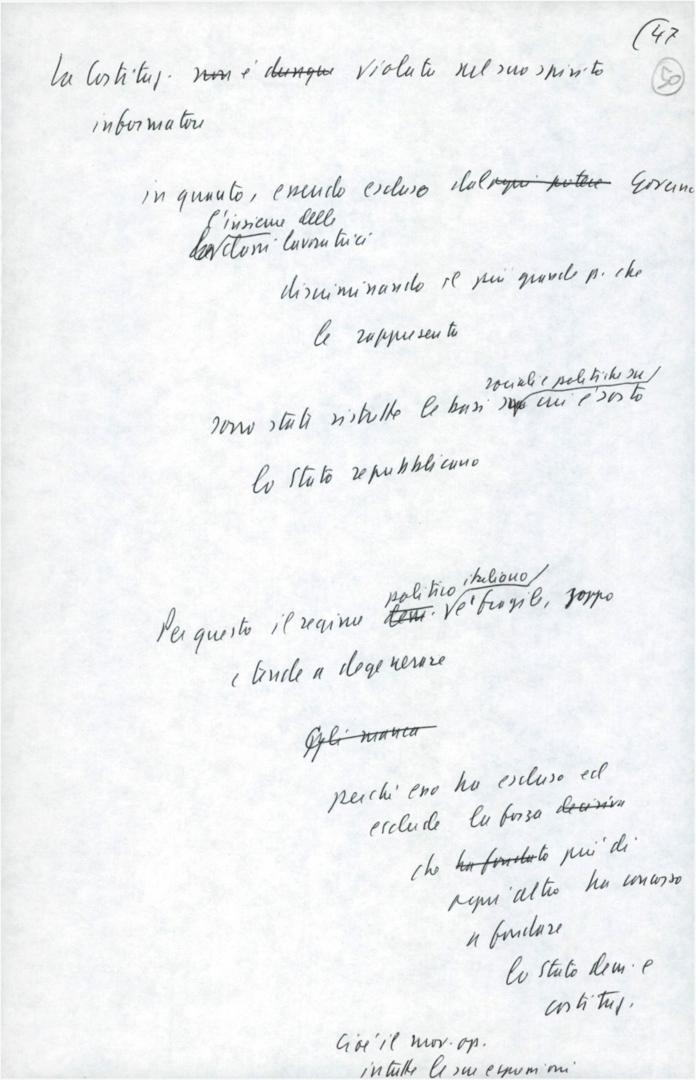 (47
50
La Costituz. non è dunque violata nel suo spirito
informatore
in quanto, essendo escluso dal ogni potere Governo
l'insieme delle
classi lavoratrici
discriminando il più grande p. che
le rappresenta
sociali e politiche su
sono state ristrette le basi cui è sorto
lo Stato repubblicano
politico italiano
Per questo il regime dem. è fragile, zoppo
e tende a degenerare
Gli manca
perché esso ha escluso ed
esclude la forza decisiva
che ha fondato più di
ogni altro ha concorso
a fondare
lo Stato dem. e
costituz.
Cioè il mov. op.
in tutte le sue espressioni